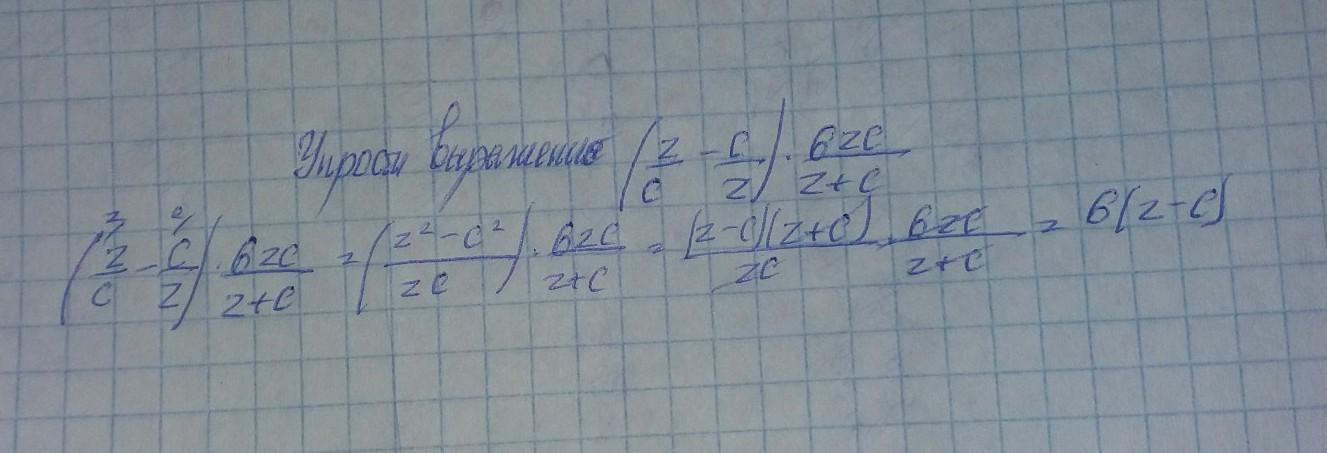 Упрости выражение (z/c - c/z) · 6zc/(z+c)
(z/c - c/z) · 6zc/(z+c) = (z² - c²/zc) · 6zc/(z+c) = (z-c)(z+c)/zc · 6zc/(z+c) = 6(z-c)